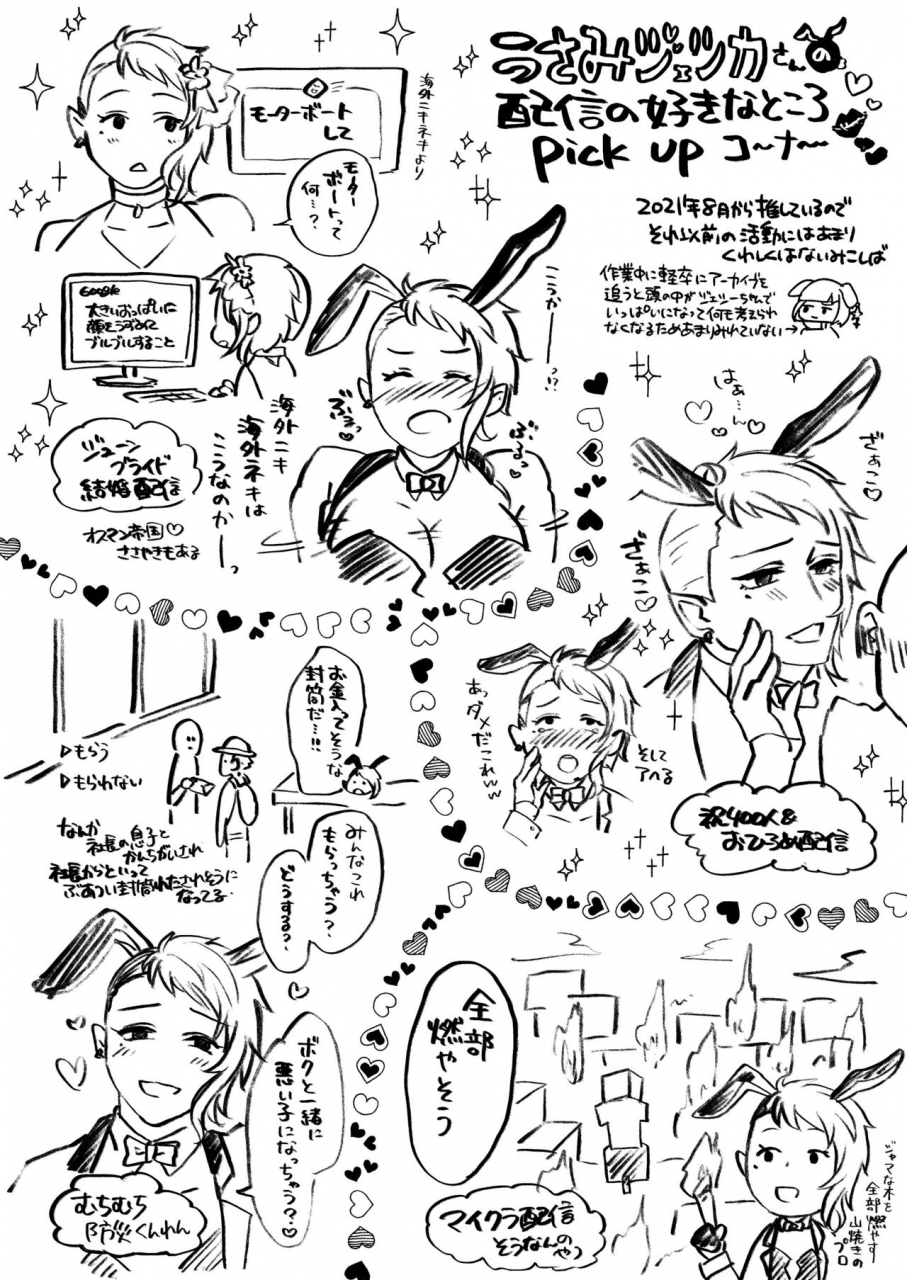 うさみヅェッカさんの
配信の好きなところ
pick up コ〜ナ〜
2021年8月から推しているので
それ以前の活動にはあまり
くわしくはないみこしば
作業中に軽卒にアーカイブを
追うと頭の中がヅェッーちゃんで
いっぱいになって何も考えられ
なくなるためあまりみれていない→
海外ニキネキより
モーターボート
して
モーター
ボートって
何…?
Google
大きいおっぱいに
顔をうずめて
ブルブルすること
こうかーー…!?
ぶぇっ♡
ぶるるっ♡
海外ニキ
海外ネキは
こうなのかーっ
ジューン
ブライド
結婚配信
オスマン帝国♡
ささやきもある
はぁ…ん♡
ざぁこ♡
ざぁこ♡
あっ
ダメ
だこれww
そして
アヘる
祝400人&
おひろめ配信
▷もらう
▷もらわない
お金入ってそうな
封筒だ…!!!
なんか
社長の息子と
かんちがいされ
社長からといって
ぶあつい封筒わたされそうに
なってる…
みんなこれ
もらっちゃう?
どうする?
ボクと一緒に
悪い子になっちゃう?♡
むちむち
防災くんれん
全部
燃やそう
マイクラ配信
そうなんのやつ
ジャマな木を
全部燃やす
山焼きの
プロ